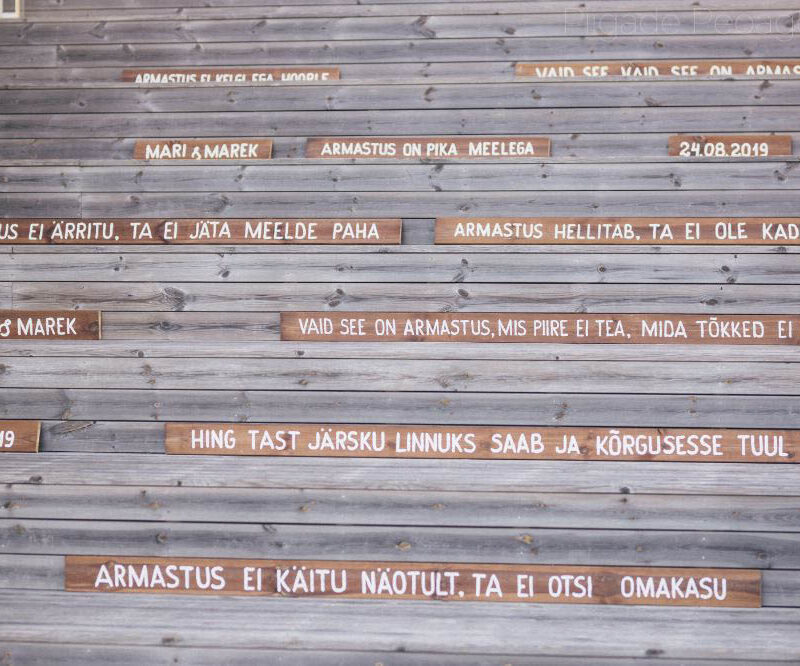 Pilgade Peoag
ARMASTUS EI KELGI EGA HOOPLE
VAID SEE VAID SEE ON ARMAS
MARI & MAREK ARMASTUS ON PIKA MEELEGA 24.08.2019
US EI ÄRRITU, TA EI JÄTA MEELDE PAHA ARMASTUS HELLITAB, TA EI OLE KAD
& MAREK VAID SEE ON ARMASTUS, MIS PIIRE EI TEA, MIDA TÕKKED EI
19 HING TAST JÄRSKU LINNUKS SAAB JA KÕRGUSESSE TUUL
ARMASTUS EI KÄITU NÄOTULT, TA EI OTSI OMAKASU